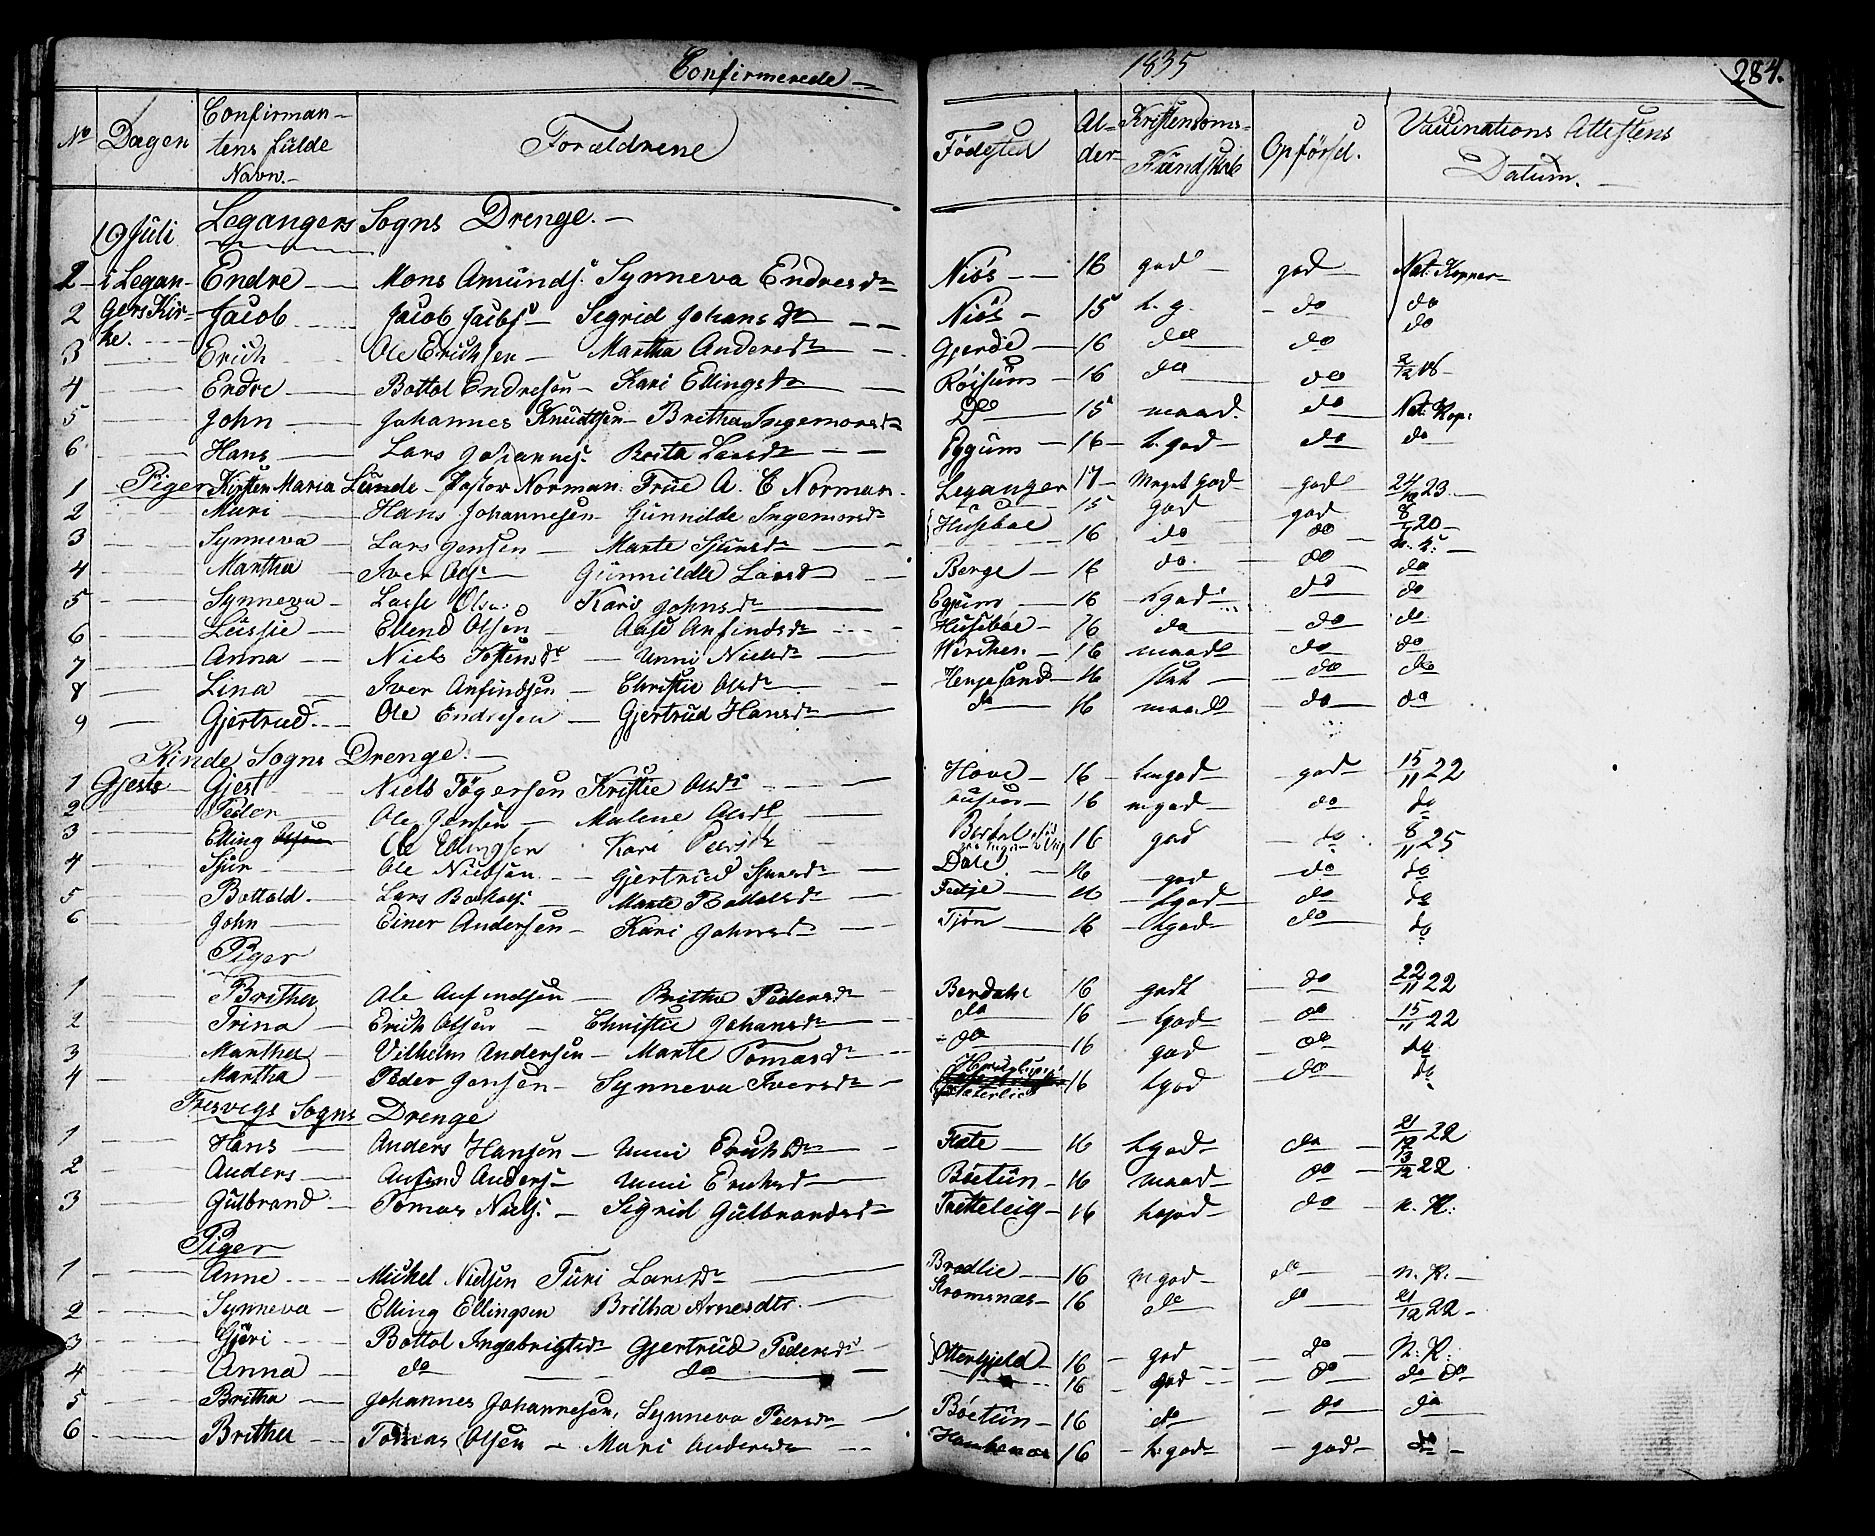 Confirmerede — 1835 284.
No Dagen Confirman- tens fulde Navn.- Forældrene Födested Al- der Kristendoms- Kundskab Opförsel. Vaccinations Attestens Datum. —
19 Juli Legangers Sogns Drenge. —
2 - i Legan- Endre — Mons Amunds. Synneva Endresdr Niös — 16 god god Nat. Kopper-
2 gers Kir- Jacob Jacob Jacobs — Sigrid Johansdr — Niös — 15 t. g. do do
3 ke. Erich Ole Erichsen — Martha Andersdr Gjerde — 16 do do do
4 — Endre — Bottol Endresen — Kari Ellingsdr — Röisum — 16 do do
5 — John — Johannes Knudtsen — Britha Ingemorsdr Do — 15 maad. do Nat: Kop:
6 — Hans — Lars Johannes. Brita Larsdr — Eggum — 16 — t. god — do do
1 Piger Kirsten Maria Lunde — Pastor Norman. Frue A. C Norman. Leganger 17 — Meget god — god 24/10 23 —
2 — Mari — Hans Johannesen — Gunnilde Ingemorsdr Huseböe 15 god god 8/7 20 —
3 — Synneva — Lars Jensen — Marte Sjursdr — 16 do do n. k: —
4 — Martha — Iver Ols. — Gunnilde Larsd — Berge — 16 do. do do
5 — Synneva — Lasse Olsen Kari Johnsdr — Eggum — 16 tgod do do
6 — Lussie — Ellend Olsen — Aase Anfindsdr — Huseböe — 16 do do do
7 — Anna — Niels — Unni Nielsdr — 16 maad do do
8 — Lina — Iver Anfindsen — Christie Olsdr — Henjesand — 16 slet — do do
9 — Gjertrud — Ole Endresen — Gjertrud Hansdr — do 16 maad do do
Rinde Sogns Drenge. —
1 Gjeste Gjest — Niels Tögersen Kristie Olsdr Hove — 16 — tmgod — god 15/11 22
2 Peder — Ole Jensen — Malene Olsdr — 16 mgod — do do
3 Elling Ole Ellingsen Kari Peersdr 16 god do 8/11 25
4 — Sjur — Ole Nielsen — Gjertrud Sjursdr — Dale 16 god do do
5 — Bottold. — Lars Bottols. — Marte Bottolsdr — Feetje — 16 — tgod — do do
6 — John — Einer Andersen — Kari Johnsdr — Tjön — 16 — tgod do do
Piger
1 — Britha Ole Anfindsen — Britha Pedersdr — Berdahl 16 godt do 22/11 22
2 — Trina — Erich Olsen — Christie Johansdr — do 16 — tgod — do 15/11 22
3 — Martha — Vilhelm Andersen — Marte Tomasdr — do 16 god do do
4 — Martha — Peder Jensen — Synneva Iversdr — 16 tgod do do
Fresvigs Sogns Drenge
1 — Hans — Anders Hansen — Unni Erichsdr — Flete — 16 tgod do 21/12 22
2 — Anders — Anfind Anders — Unni Erichsdr — Böetun — 16 maad do 13/12 22
3 — Gulbrand — Tomas Niels. — Sigrid Gulbrandsdr — Tretteleig — 16 tgod do n. K:
Piger
1 — Anne — Mickel Nielsen Turi Larsdr — Bradlie — 16 m god — do n. K. —
2 — Synneva — Elling Ellingsen Britha Arnesdtr. — Stromsnæs — 16 do do 21/12 22 —
3 — Gjöri — Bottol Ingebrigtsdr Gjertrud Pedersdr Otterhjeld — 16 god do N: K:
4 — Anna — do — do — 16 god do do
5 — Britha — Johannes Johannesen, Synneva Peersdr — Böetun — 16 do do do
6 — Britha — Tomas Olsen — Mari Andersdr — 16 — t. god — god do